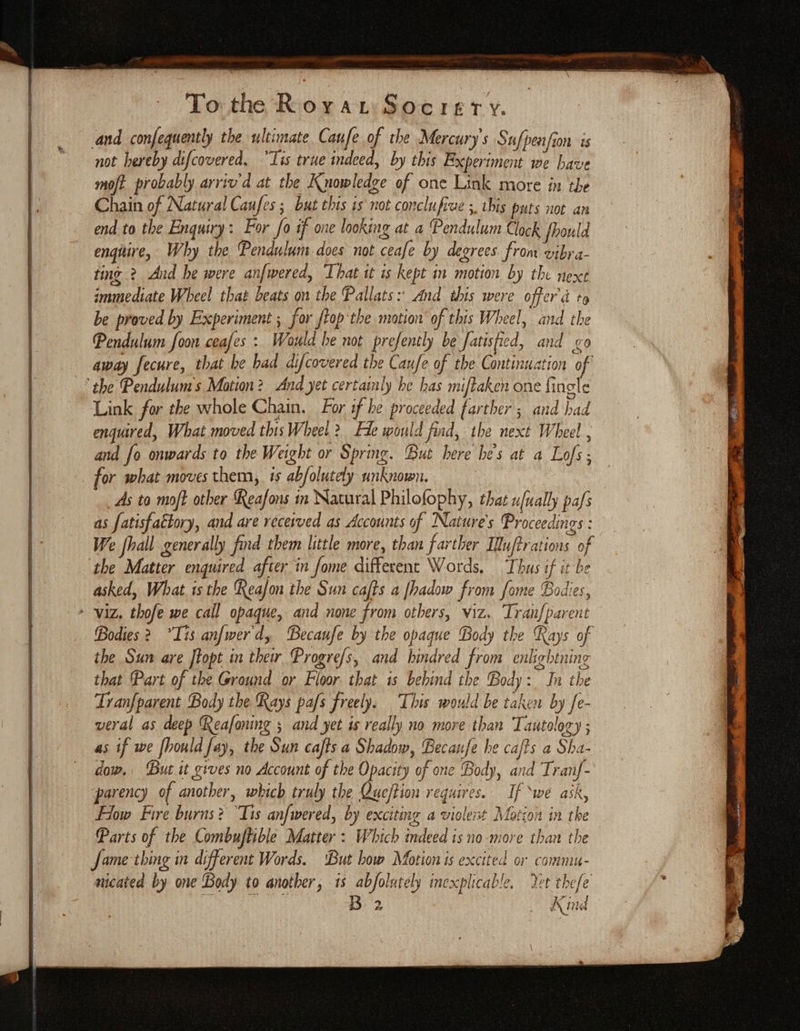 To the ROYAL SOCIETY.
and conſequently the ultimate Cauſe of the Mercury's Suſpenſion is
not hereby diſcovered. 'Tis true indeed, by this Experiment we have
moſt probably arriv'd at the Knowledge of one Link more in the
Chain of Natural Cauſes; but this is not concluſive; this puts not an
end to the Enquiry: For ſo if one looking at a Pendulum Clock ſhould
enquire, Why the Pendulum does not ceaſe by degrees from vibra-
ting? And he were anſwered, That it is kept in motion by the next
immediate Wheel that beats on the Pallats: And this were offer'd to
be proved by Experiment; for ſtop the motion of this Wheel, and the
Pendulum ſoon ceaſes: Would he not preſently be ſatisfied, and go
away ſecure, that he had diſcovered the Cauſe of the Continuation of
the Pendulum's Motion? And yet certainly he has miſtaken one ſingle
Link for the whole Chain. For if he proceeded farther; and had
enquired, What moved this Wheel? He would find, the next Wheel,
and ſo onwards to the Weight or Spring. But here he's at a Loſs;
for what moves them, is abſolutely unknown.
As to moſt other Reaſons in Natural Philoſophy, that uſually paſs
as ſatisfactory, and are received as Accounts of Nature's Proceedings:
We ſhall generally find them little more, than farther Illuſtrations of
the Matter enquired after in ſome different Words. Thus if it be
asked, What is the Reaſon the Sun caſts a ſhadow from ſome Bodies,
viz. thoſe we call opaque, and none from others, viz. Tranſparent
Bodies? 'Tis anſwer'd, Becauſe by the opaque Body the Rays of
the Sun are ſtopt in their Progreſs, and hindred from enlightning
that Part of the Ground or Floor that is behind the Body: In the
Tranſparent Body the Rays paſs freely. This would be taken by ſe-
veral as deep Reaſoning; and yet is really no more than Tautology;
as if we ſhould ſay, the Sun caſts a Shadow, Becauſe he caſts a Sha-
dow. But it gives no Account of the Opacity of one Body, and Tranſ-
parency of another, which truly the Queſtion requires. If we ask,
How Fire burns? 'Tis anſwered, by exciting a violent Motion in the
Parts of the Combuſtible Matter: Which indeed is no more than the
ſame thing in different Words. But how Motion is excited or commu-
nicated by one Body to another, is abſolutely inexplicable. Yet theſe
B 2 Kind